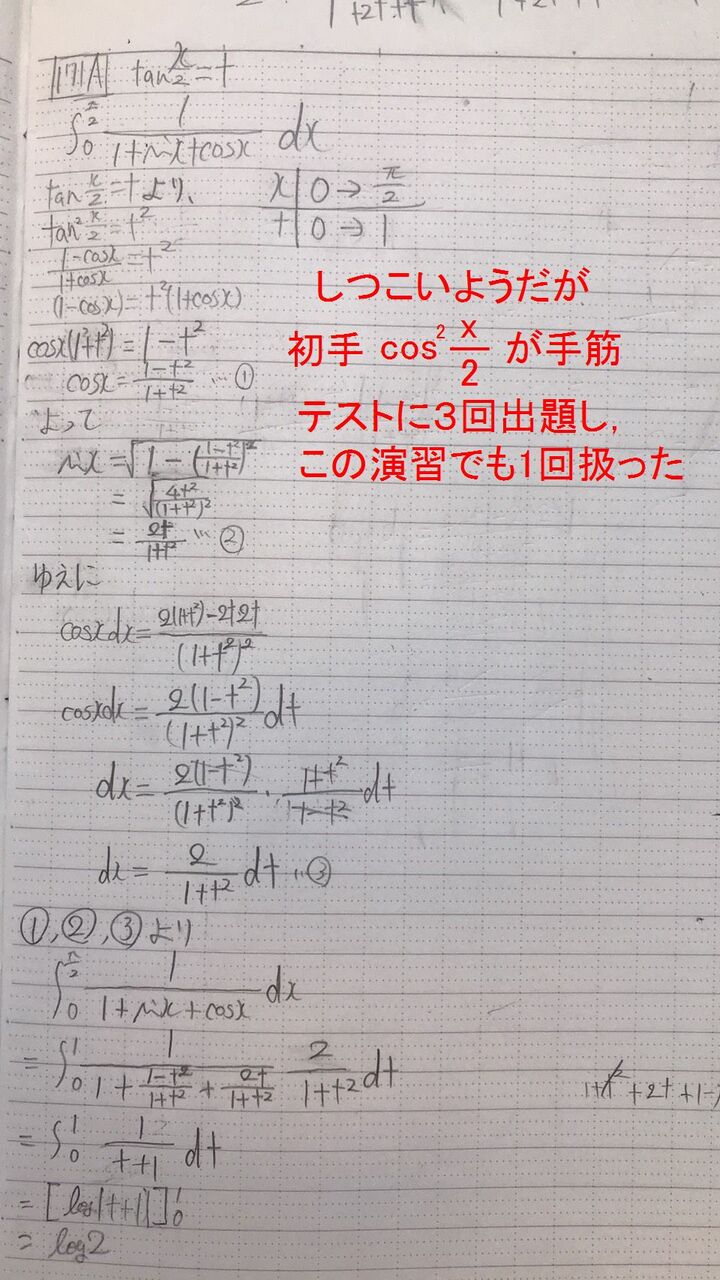 171A tan x/2 = t
∫_0^{π/2} 1/(1+sinx+cosx) dx
tan x/2 = t より、 x | 0 → π/2
tan² x/2 = t² t | 0 → 1
(1-cosx)/(1+cosx) = t²
(1-cosx) = t²(1+cosx)
cosx(1+t²) = 1-t²
cosx = (1-t²)/(1+t²) … ①
よって
sinx = √(1-((1-t²)/(1+t²))²)
= √(4t²/(1+t²)²)
= 2t/(1+t²) … ②
ゆえに
cosxdx = (2(1+t²)-2t2t)/(1+t²)²
cosxdx = 2(1-t²)/(1+t²)² dt
dx = 2(1-t²)/(1+t²)² · (1+t²)/(1-t²) dt
dx = 2/(1+t²) dt …③
①,②,③より
∫_0^{π/2} 1/(1+sinx+cosx) dx
= ∫_0^1 1/(1+(1-t²)/(1+t²)+2t/(1+t²)) 2/(1+t²) dt
1+t²+2t+1-
= ∫_0^1 1/(t+1) dt
= [log|t+1|]_0^1
= log2
しつこいようだが
初手 cos² x/2 が手筋
テストに3回出題し,
この演習でも1回扱った